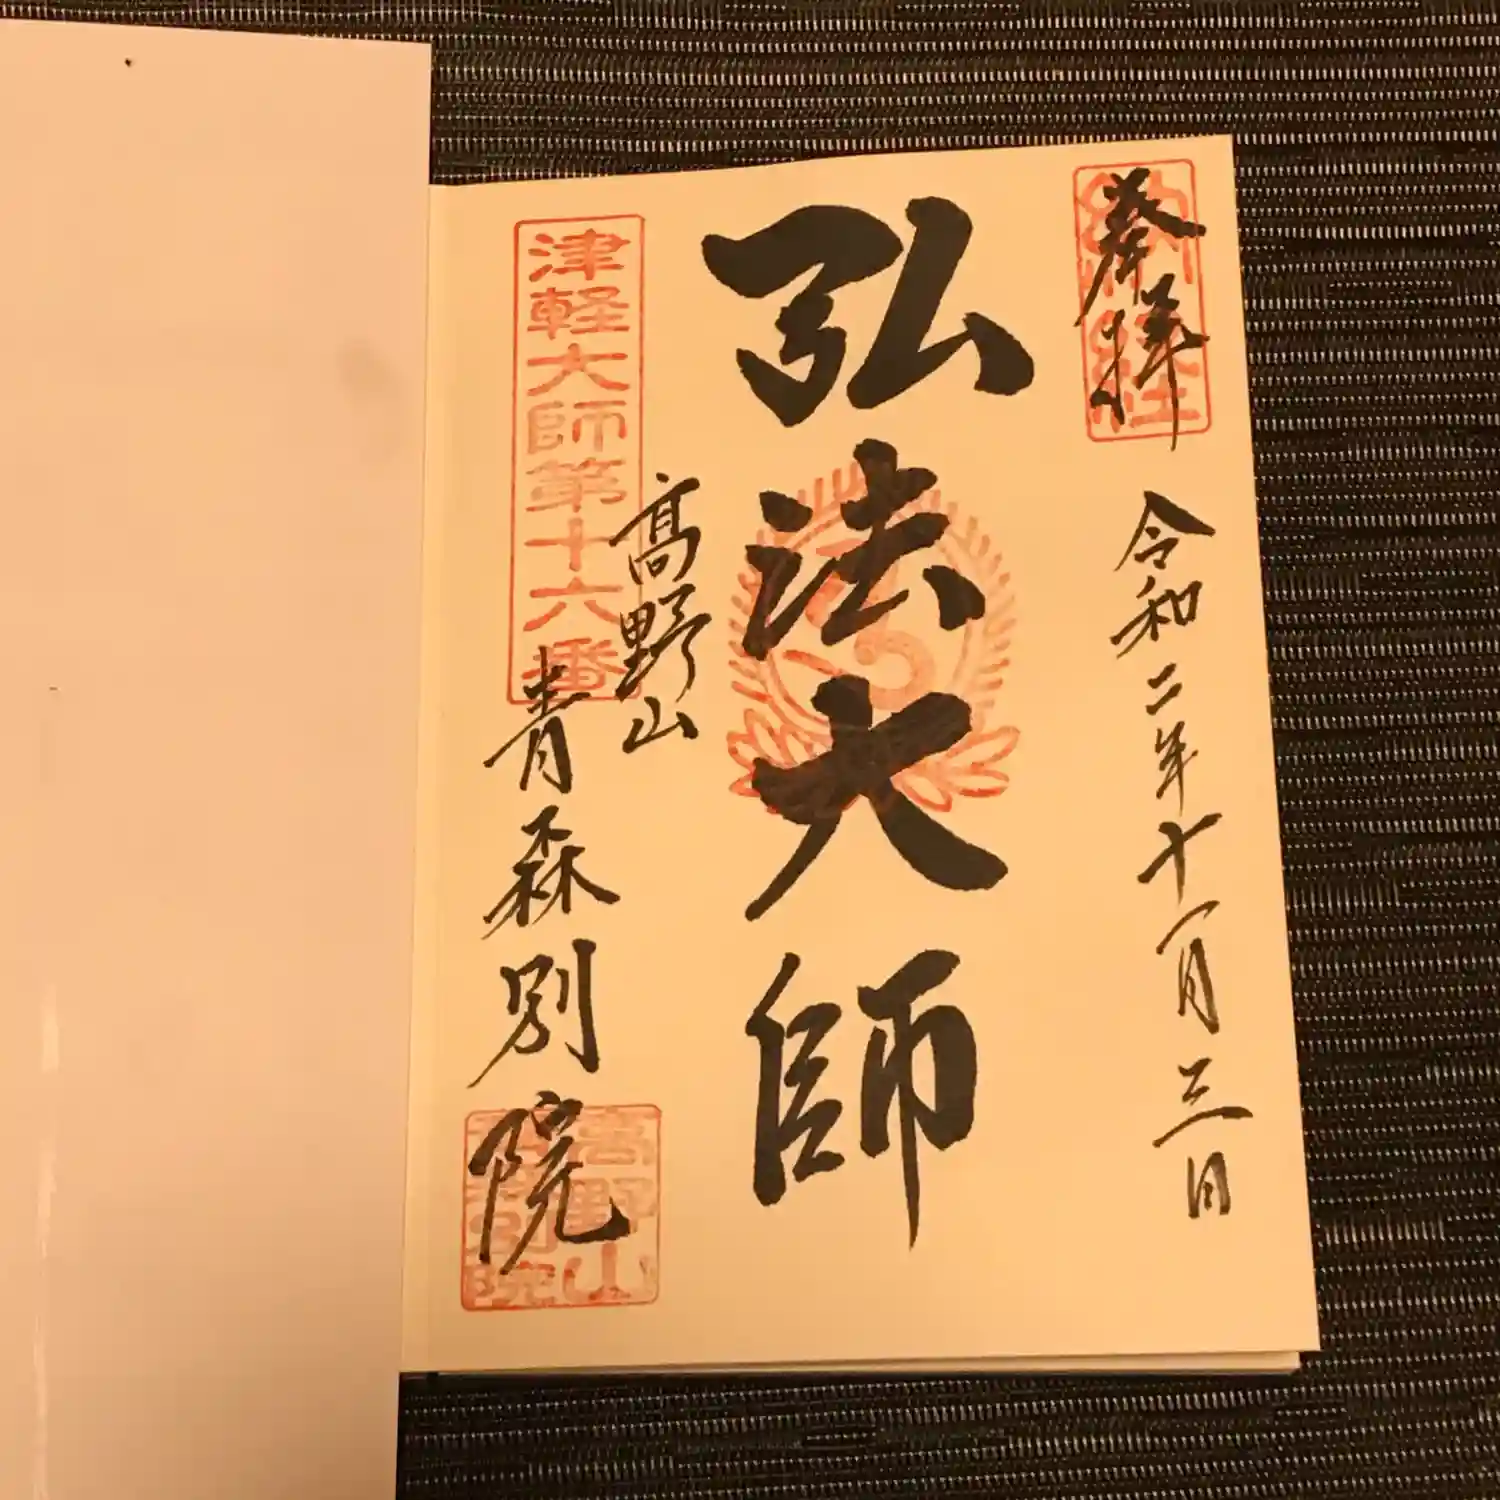 奉拝
納経
令和二年十一月三日
弘法大師
津軽大師第十六番
高野山
青森別院
高野山
青森別院